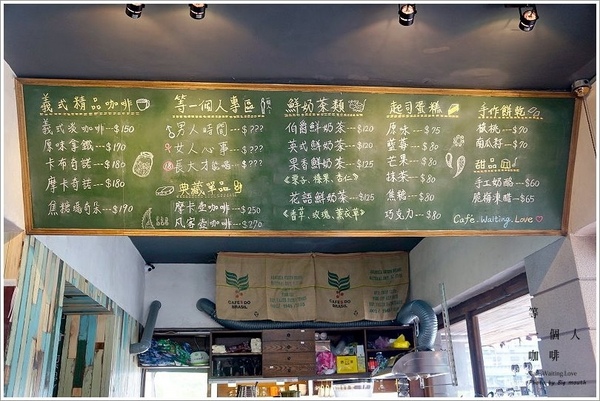 義式精品咖啡
義式淡咖啡---$150
原味拿鐵---$170
卡布奇諾---$180
摩卡奇諾---$180
焦糖瑪奇朵---$190
等一個人專區
男人時間---$???
女人心事---$???
長大才能喝---$???
典藏單品
摩卡壺咖啡---$250
風客壺咖啡---$270
鮮奶茶類
伯爵鮮奶茶---$120
英式鮮奶茶---$120
果香鮮奶茶---$125
《栗子、榛果、杏仁》
花語鮮奶茶---$125
《香草、玫瑰、薰衣草》
起司蛋糕
原味---$75
藍莓---$80
芒果---$80
抹茶---$80
焦糖---$80
巧克力---$80
手作餅乾
核桃---$70
南瓜籽---$70
甜品
手工奶酪---$60
脆糖凍醋---$65
Cafe.Waiting.Love
CAFÉS DO BRASIL
CAFÉS DO BRASIL
等個人咖啡
Cafe.Waiting.Love
Photo by Big mouth